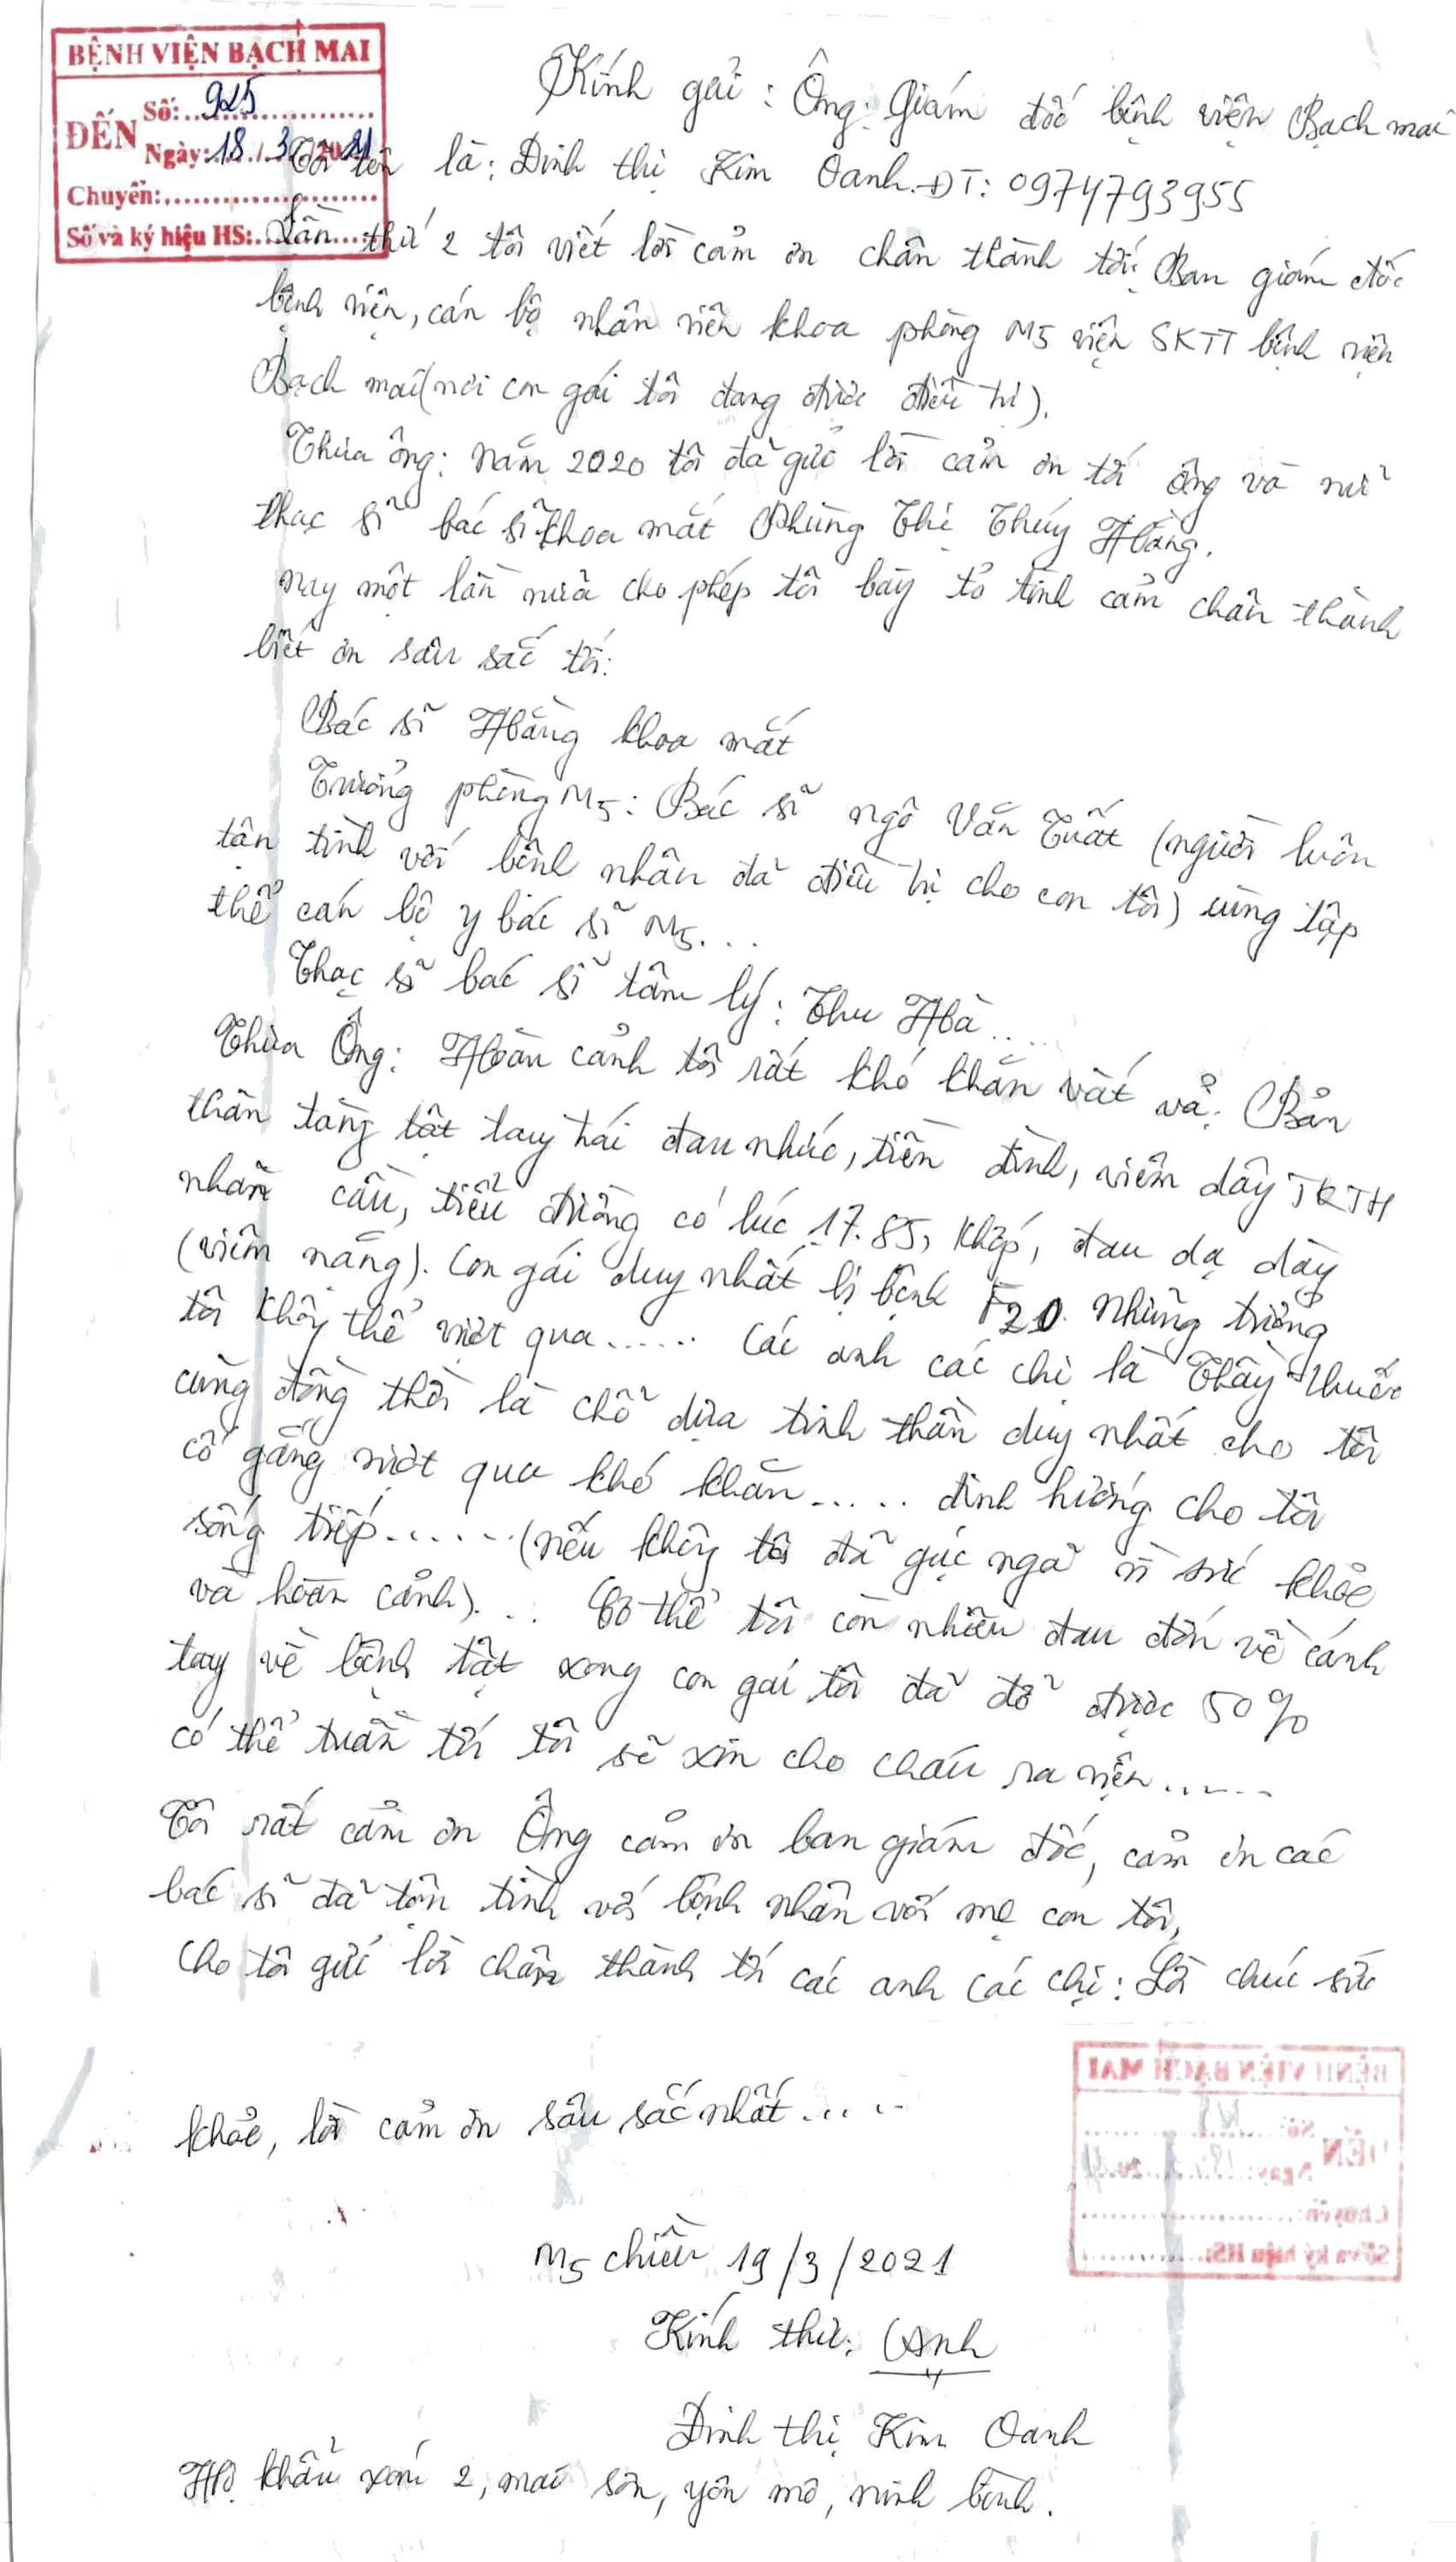 BỆNH VIỆN BẠCH MAI
Số: 925
ĐẾN
Ngày: 18 / 3 / 2021
Chuyển:
Số và ký hiệu HS:
Kính gửi: Ông: Giám đốc bệnh viện Bạch mai
Tôi tên là: Đinh thị Kim Oanh. ĐT: 0974793955
Lần thứ 2 tôi viết lời cảm ơn chân thành tới: Ban giám đốc
bệnh viện, cán bộ nhân viên khoa phòng M5 viện SKTT bệnh viện
Bạch mai (nơi con gái tôi đang được điều trị).
Thưa ông: năm 2020 tôi đã gửi lời cảm ơn tới ông và nữ
thạc sĩ bác sĩ khoa mắt Phùng Thị Thúy Hằng.
nay một lần nữa cho phép tôi bày tỏ tình cảm chân thành
biết ơn sâu sắc tới:
Bác sĩ Hằng khoa mắt
Trưởng phòng M5: Bác sĩ ngô Văn Tuất (người luôn
tận tình với bệnh nhân đã điều trị cho con tôi) cùng tập
thể cán bộ y bác sĩ M5...
Thạc sĩ bác sĩ tâm lý: Thu Hà....
Thưa Ông: Hoàn cảnh tôi rất khó khăn vất vả: Bản
thân tàng tật tay trái đau nhức, tiền đình, viêm dây TKTH
nhãn cầu, tiểu đường có lúc 17.85, khớp, đau dạ dày
(viêm nặng). Con gái duy nhất bị bệnh F20. Những tưởng
tôi không thể vượt qua...... Các anh các chị là Thầy thuốc
cùng đồng thời là chỗ dựa tinh thần duy nhất cho tôi
cố gắng vượt qua khó khăn..... định hướng cho tôi
sống tiếp...... (nếu không tôi đã gục ngã vì sức khỏe
và hoàn cảnh)... Có thể tôi còn nhiều đau đớn về cánh
tay về bệnh tật xong con gái tôi đã đỡ được 50%
có thể tuần tới tôi sẽ xin cho cháu ra viện......
Tôi rất cảm ơn Ông cảm ơn ban giám đốc, cảm ơn các
bác sĩ đã tận tình với bệnh nhân với mẹ con tôi,
cho tôi gửi lời chân thành tới các anh các chị: Lời chúc sức
khỏe, lời cảm ơn sâu sắc nhất.....
M5 chiều 19/3/2021
Kính thư: Oanh
Đinh thị Kim Oanh
Hộ khẩu xóm 2, mai sơn, yên mô, ninh bình.